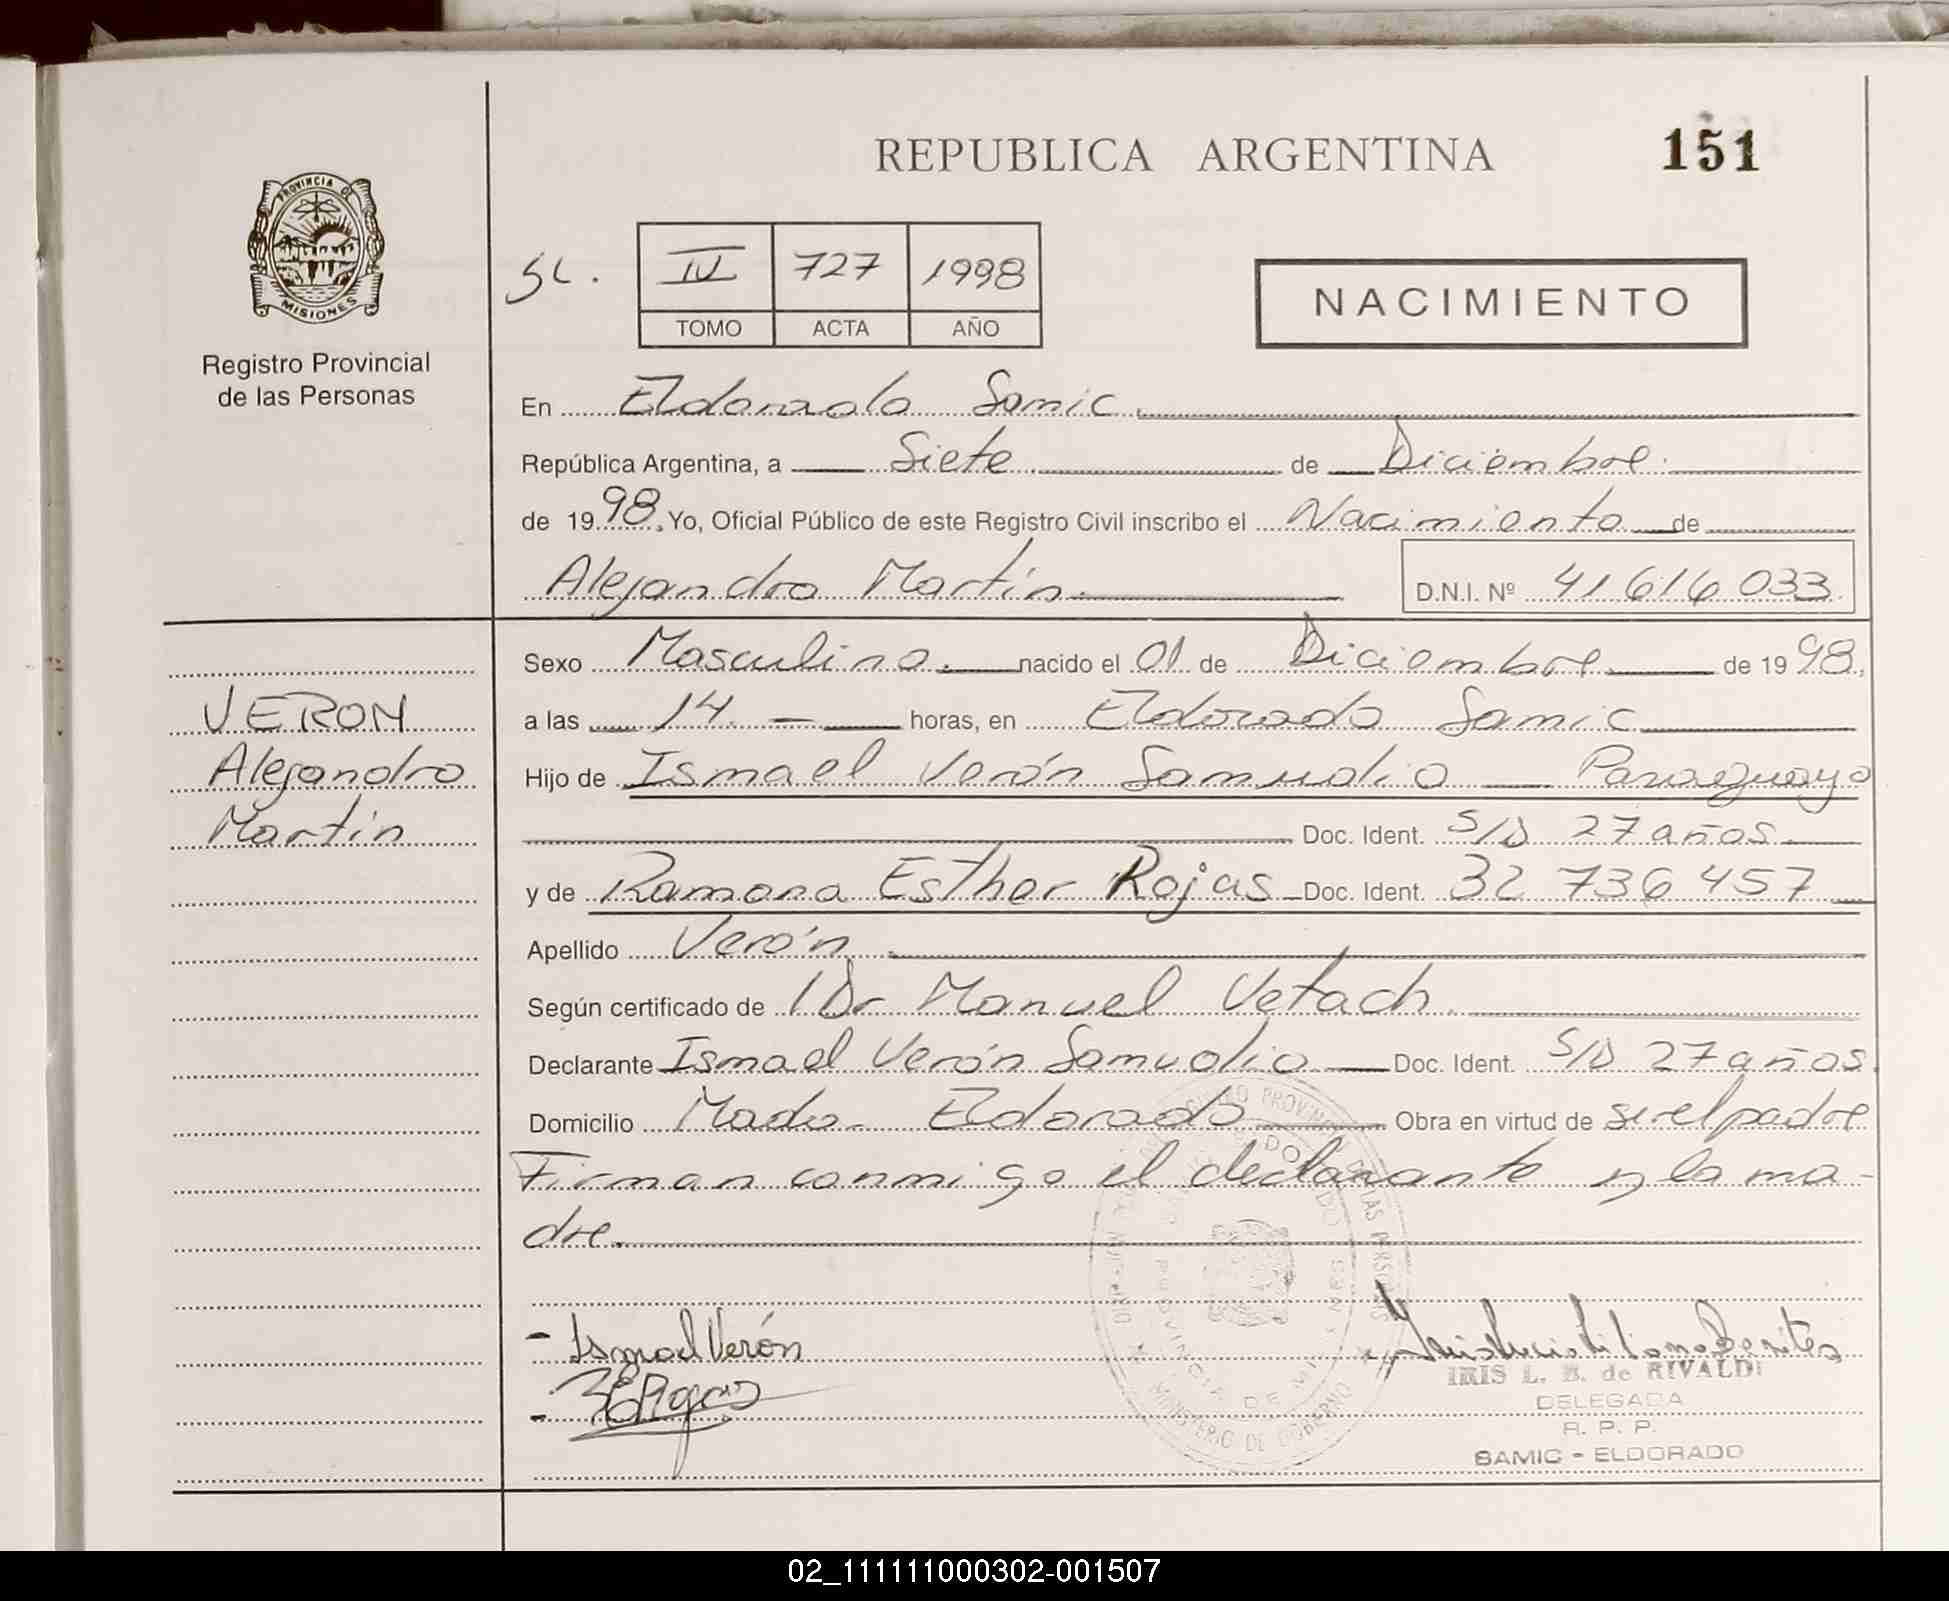 REPUBLICA ARGENTINA
151
PROVINCIA DE
MISIONES
Registro Provincial
de las Personas
SL. IV 727 1998
TOMO ACTA AÑO
NACIMIENTO
En Eldorado Samic
República Argentina, a Siete de Diciembre
de 1998. Yo, Oficial Público de este Registro Civil inscribo el Nacimiento de
Alejandro Martín D.N.I. Nº 41 616 033
Sexo Masculino. nacido el 01 de Diciembre de 1998.
VERON
Alejandro
Martín
a las 14 — horas, en Eldorado Samic
Hijo de Ismael Verón Samudio — Paraguayo
Doc. Ident. S/D 27 años
y de Ramona Esther Rojas Doc. Ident. 32 736 457
Apellido Verón
Según certificado de Dr Manuel Vetach
Declarante Ismael Verón Samudio Doc. Ident. S/D 27 años.
Domicilio Mado - Eldorado Obra en virtud de ser el padre
Firman conmigo el declarante y la ma-
dre.
- Ismael Verón
IRIS L. B. de RIVALDI
DELEGADA
R. P. P.
SAMIC - ELDORADO
MINISTERIO DE GOBIERNO
PROVINCIA DE
02_111111000302-001507